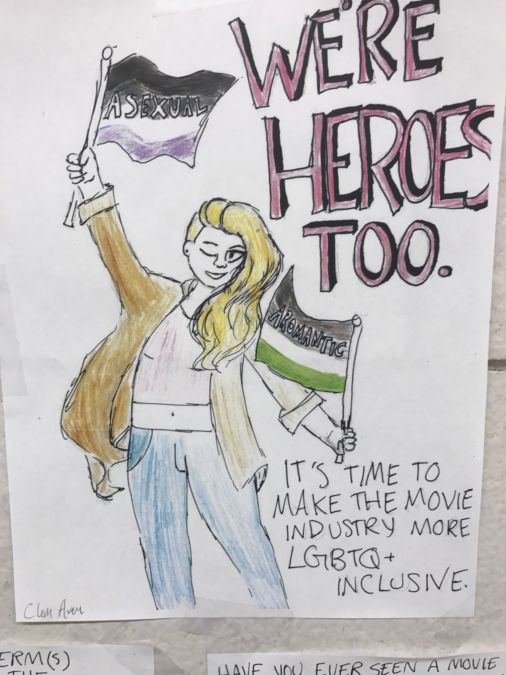 WE'RE
HEROES
TOO.
ASEXUAL
AROMANTIC
IT'S TIME TO
MAKE THE MOVIE
INDUSTRY MORE
LGBTQ+
INCLUSIVE.
ERM(S)
THE
HAVE YOU EVER SEEN A MOVIE